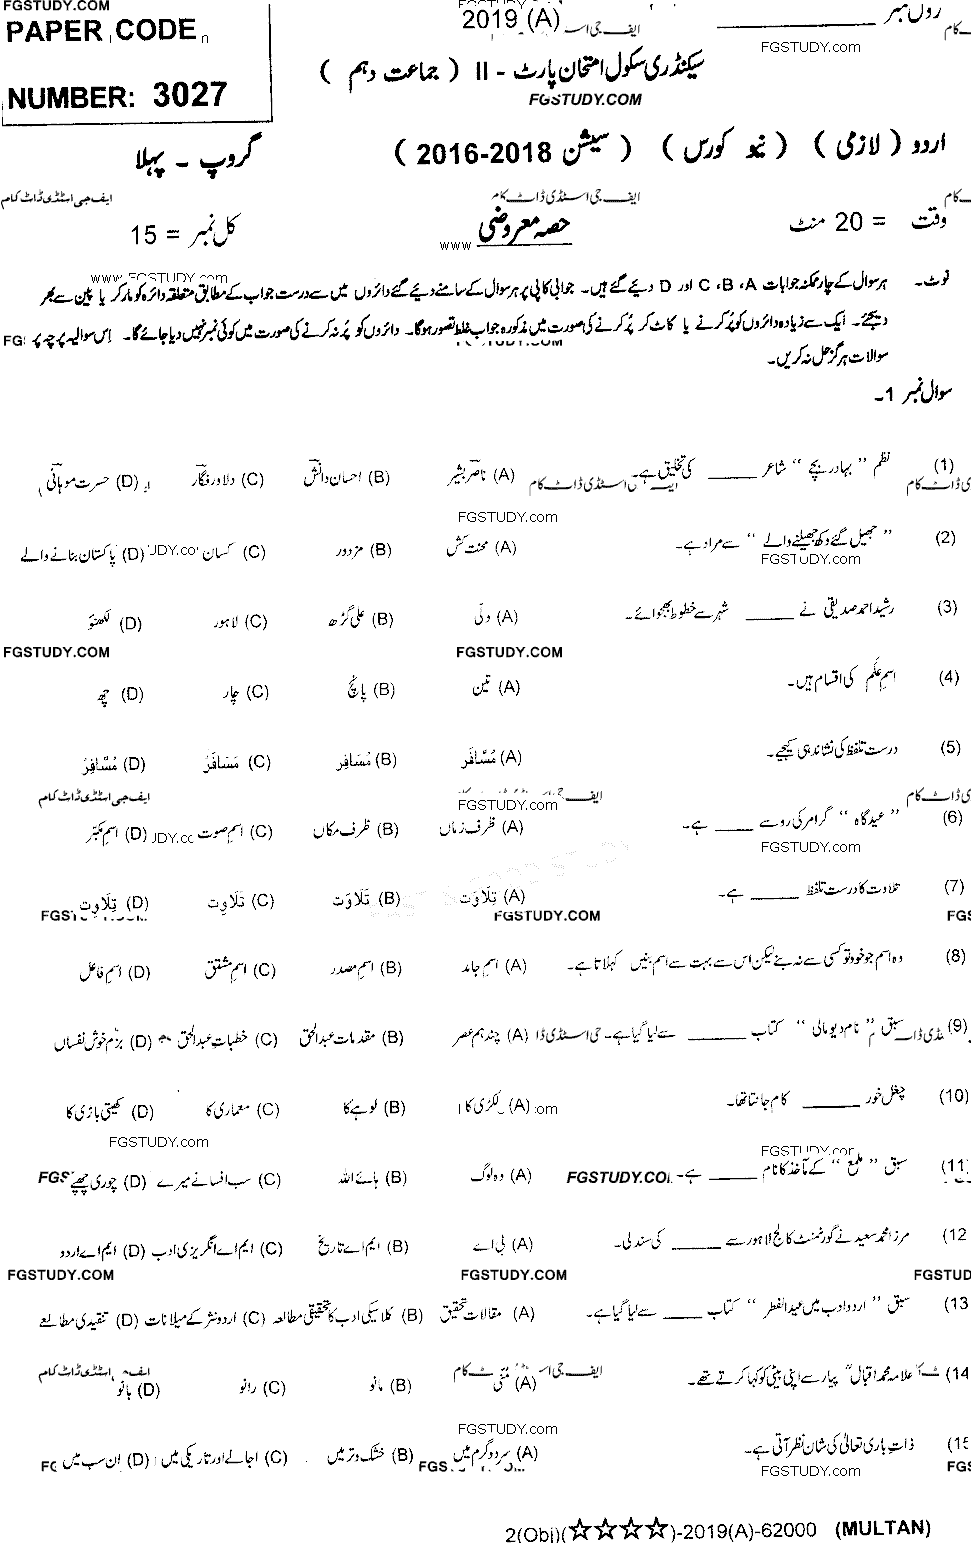 FGSTUDY.COM
PAPER CODE
NUMBER: 3027
2019 (A) ایف جی اسـ
رول نمبر ____________
FGSTUDY.com
سیکنڈری سکول امتحان پارٹ - II ( جماعت دہم )
FGSTUDY.COM
اردو ( لازمی ) ( نیو کورس ) ( سیشن 2016-2018 )
گروپ ۔ پہلا
ایف جی اسٹڈی ڈاٹ کام ایف جی اسٹڈی ڈاٹ کام کام
وقت = 20 منٹ
حصہ معروضی
www
کل نمبر = 15
www.FGSTUDY.com
نوٹ۔ ہر سوال کے چار ممکنہ جوابات A، B، C اور D دیئے گئے ہیں۔ جوابی کاپی پر ہر سوال کے سامنے دیئے گئے دائروں میں سے درست جواب کے مطابق متعلقہ دائرہ کو مارکر یا پین سے بھر
دیجئے۔ ایک سے زیادہ دائروں کو پُر کرنے یا کاٹ کر پُر کرنے کی صورت میں مذکورہ جواب غلط تصور ہوگا۔ دائروں کو پُر نہ کرنے کی صورت میں کوئی نمبر نہیں دیا جائے گا۔ اِس سوالیہ پرچہ پر
سوالات ہرگز حل نہ کریں۔
سوال نمبر 1۔
(1) نظم ”بہادر بچے“ شاعر _____ کی تخلیق ہے۔ (A) ناصر بشیر (B) احسان دانش (C) دلاور فگار (D) حسرت موہانی
ایف جی اسٹڈی ڈاٹ کام
FGSTUDY.com
(2) ”جھیل گئے دکھ جھیلنے والے“ سے مراد ہے۔ (A) محنت کش (B) مزدور (C) کسان (D) پاکستان بنانے والے
FGSTUDY.com
(3) رشید احمد صدیقی نے _____ شہر سے خطوط بھجوائے۔ (A) دلّی (B) علی گڑھ (C) لاہور (D) لکھنؤ
FGSTUDY.COM FGSTUDY.COM
(4) اسمِ عَلَم کی اقسام ہیں۔ (A) تین (B) پانچ (C) چار (D) چھ
(5) درست تلفظ کی نشاندہی کیجیے۔ (A) مُسَّافَر (B) مُسَافِر (C) مَسَافَرْ (D) مُسَّافِرْ
ایف جی اسٹڈی ڈاٹ کام
FGSTUDY.com
(6) ”عید گاہ“ گرامر کی رو سے ____ ہے۔ (A) ظرف زماں (B) ظرف مکاں (C) اسم صوت (D) اسم مکبّر
FGSTUDY.com
(7) تلاوت کا درست تلفظ _____ ہے۔ (A) تِلَاوَت (B) تَلَاوَت (C) تَلَاوِت (D) تِلَاوِت
FGSTUDY.COM
(8) وہ اسم جو خود تو کسی سے نہ بنے لیکن اس سے بہت سے اسم بنیں کہلاتا ہے۔ (A) اسم جامد (B) اسم مصدر (C) اسم مشتق (D) اسم فاعل
(9) سبق ”نام دیو مالی“ کتاب _____ سے لیا گیا ہے۔ (A) چند ہم عصر (B) مقدمات عبدالحق (C) خطبات عبدالحق (D) بزم خوش نفساں
(10) چغل خور _____ کام جانتا تھا۔ (A) لکڑی کا (B) لوہے کا (C) معماری کا (D) کھیتی باڑی کا
FGSTUDY.com
(11) سبق ”ملمع“ کے مآخذ کا نام _____ ہے۔ (A) وہ لوگ (B) ہائے اللہ (C) سب افسانے میرے (D) چوری چھپے
(12) مرزا محمد سعید نے گورنمنٹ کالج لاہور سے _____ کی سند لی۔ (A) بی اے (B) ایم اے تاریخ (C) ایم اے انگریزی ادب (D) ایم اے اردو
FGSTUDY.COM FGSTUDY.COM FGSTUD
(13) سبق ”اردو ادب میں عید الفطر“ کتاب ____ سے لیا گیا ہے۔ (A) مقالات تحقیق (B) کلاسیکی ادب کا تحقیقی مطالعہ (C) اردو نثر کے میلانات (D) تنقیدی مطالعے
(14) علامہ محمد اقبالؒ پیار سے اپنی بیٹی کو کہا کرتے تھے۔ (A) مُنّی (B) مانو (C) رانو (D) بانو
FGSTUDY.com
(15 ذاتِ باری تعالیٰ کی شان نظر آتی ہے۔ (A) سرد و گرم میں (B) خشک و تر میں (C) اجالے اور تاریکی میں (D) اِن سب میں
FGSTUDY.com
2(Obj)(☆☆☆☆)-2019(A)-62000 (MULTAN)